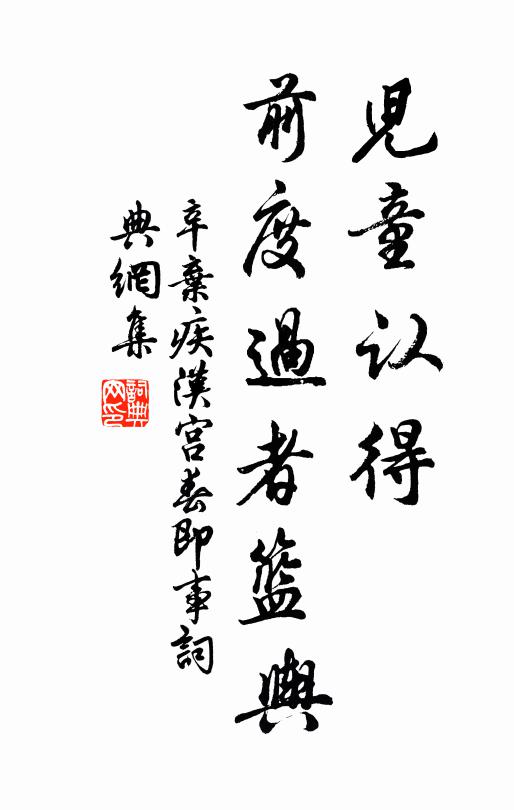 児童认得
前度過者籃輿
辛棄疾漢宮春即事詞
典網集
詞典
网印